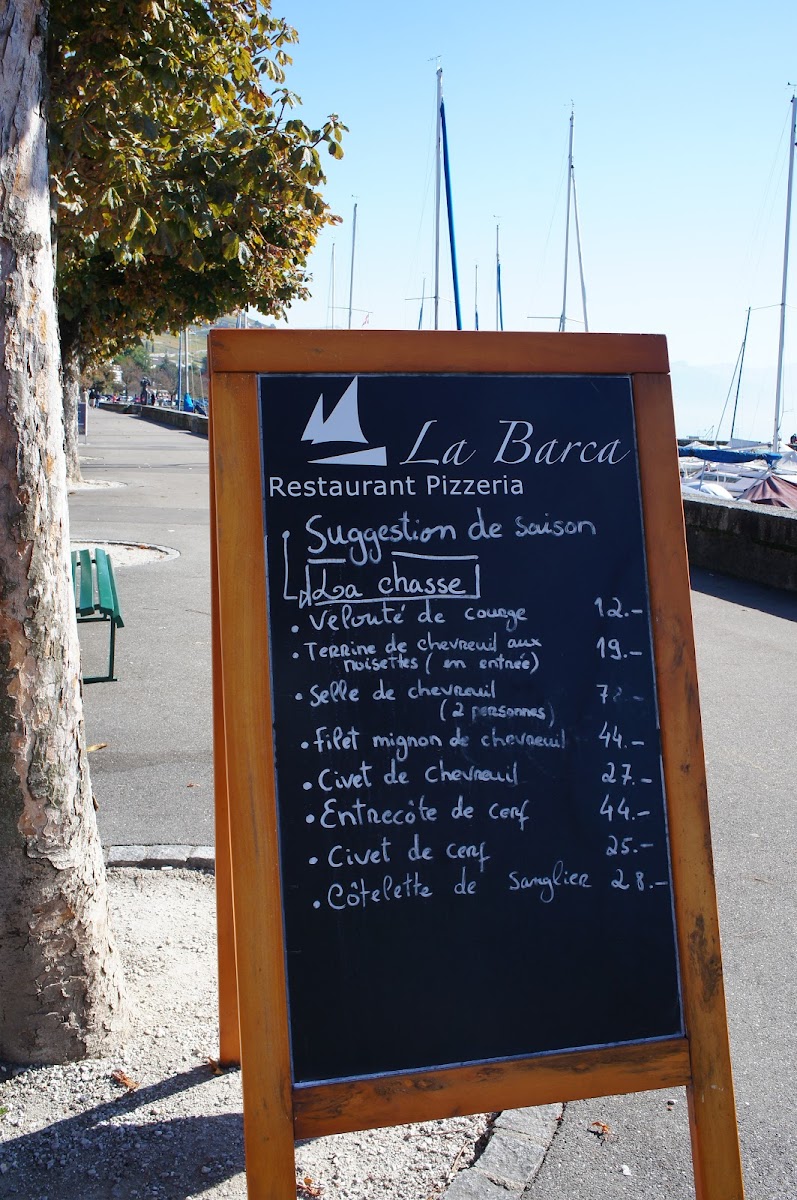 La Barca
Restaurant Pizzeria
Suggestion de saison
La chasse
• Velouté de courge 12.-
• Terrine de chevreuil aux 19.-
noisettes (en entrée)
• Selle de chevreuil
(2 personnes)
• Filet mignon de chevreuil 44.-
• Civet de chevreuil 27.-
• Entrecôte de cerf 44.-
• Civet de cerf 25.-
• Côtelette de sanglier 28.-